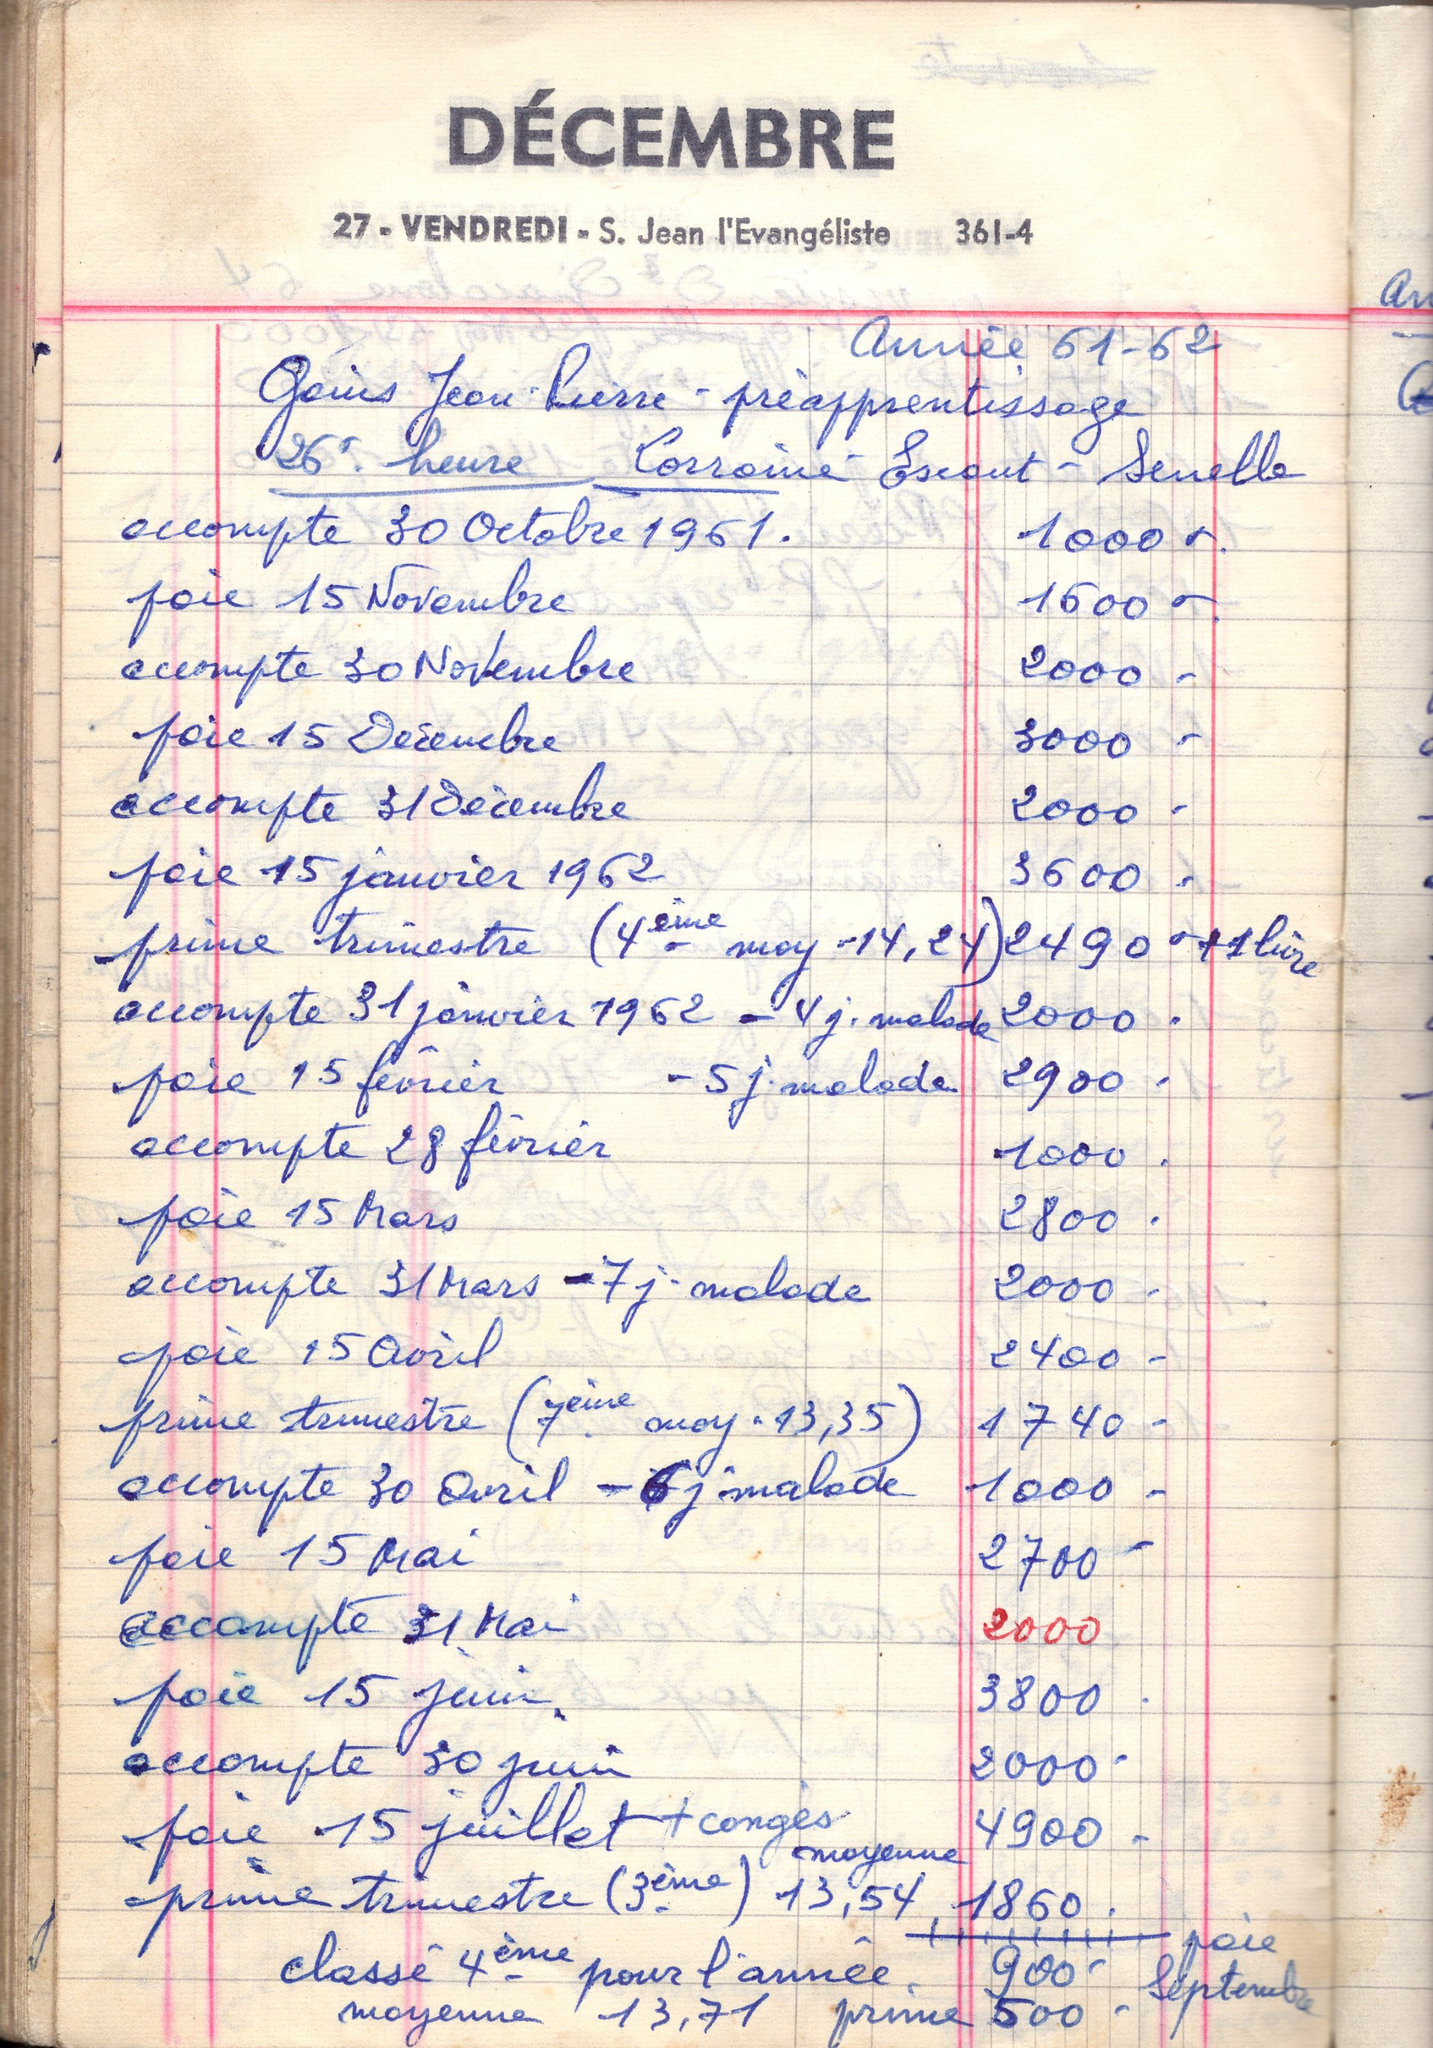 DÉCEMBRE
27 - VENDREDI - S. Jean l'Evangéliste 361-4
Année 61-62
Gains Jean-Pierre - préapprentissage
26f. heure Lorraine-Escaut - Senelle
accompte 30 Octobre 1961. 1000 -
paie 15 Novembre 1600 -
accompte 30 Novembre 2000 -
paie 15 Décembre 3000 -
accompte 31 Décembre 2000 -
paie 15 janvier 1962 3600 -
prime trimestre (4ème moy - 14,24) 2490 - + 1 livre
accompte 31 janvier 1962 - 4 j. malade 2000 -
paie 15 février - 5 j. malade 2900 -
accompte 28 février 1000 -
paie 15 Mars 2800 -
accompte 31 Mars - 7 j. malade 2000 -
paie 15 Avril 2400 -
prime trimestre (7ème moy - 13,35) 1740 -
accompte 30 Avril - 6 j. malade 1000 -
paie 15 Mai 2700 -
accompte 31 Mai 2000
paie 15 juin 3800 -
accompte 30 juin 2000 -
paie 15 juillet + congés 4900 -
prime trimestre (3ème) moyenne 13,54 1860 .
classé 4ème pour l'année. 900 - paie Septembre
moyenne 13,71 prime 500 -